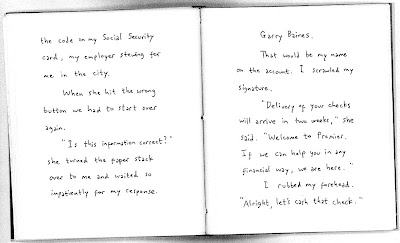 the code on my Social Security
card, my employer stewing for
me in the city.
When she hit the wrong
button we had to start over
again.
"Is this information correct?"
she turned the paper stack
over to me and waited so
impatiently for my response.
Garry Baines.
That would be my name
on the account. I scrawled my
signature.
"Delivery of your checks
will arrive in two weeks," she
said. "Welcome to Premier.
If we can help you in any
financial way, we are here."
I rubbed my forehead.
"Alright, let's cash that check."